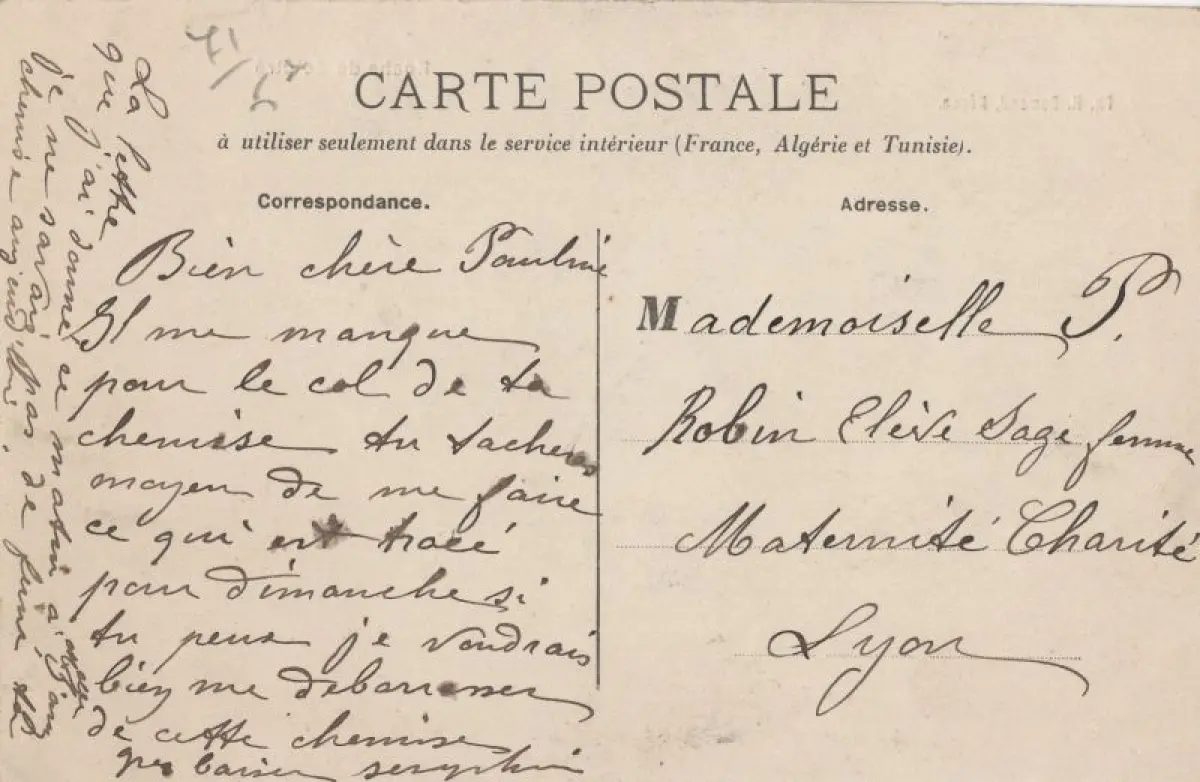 CARTE POSTALE
à utiliser seulement dans le service intérieur (France, Algérie et Tunisie).
Correspondance.
Adresse.
Bien chère Pauline
Il me manque
pour le col de ta
chemise tu tacheras
moyen de me faire
ce qui est tracé
pour dimanche si
tu peux je voudrais
bien me debarrasser
de cette chemise
gros baiser
La lettre
que j'ai donné ce matin a
je ne savais pas de finir ta
chemise aujourd'hui
Mademoiselle P.
Robin Elève Sage femme
Maternité Charité
Lyon